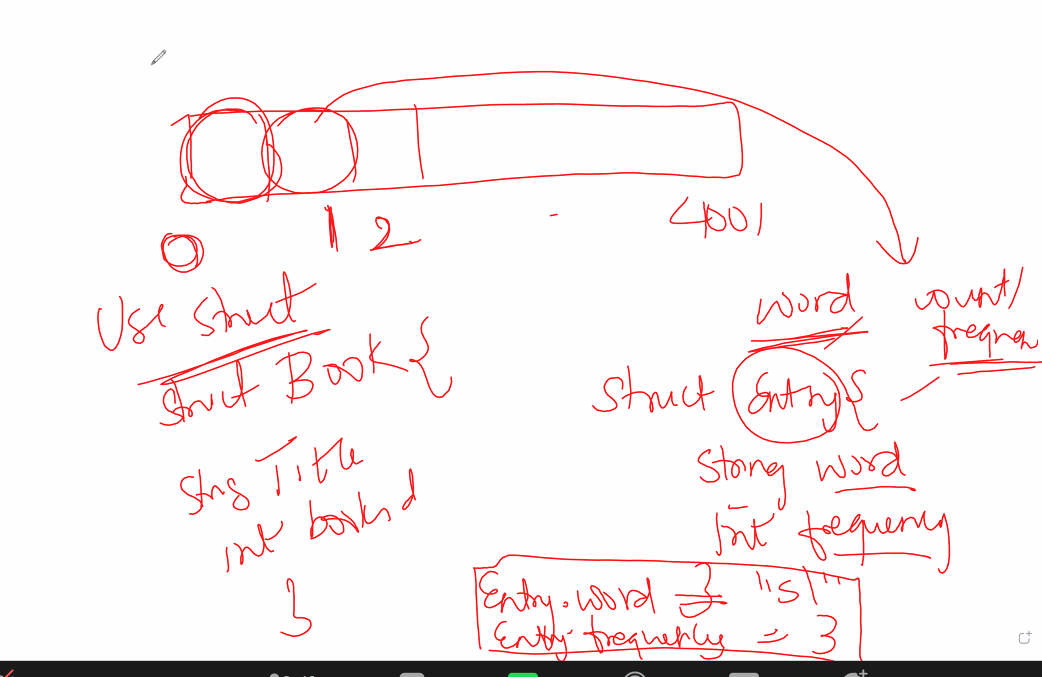 0 1 2 - 4001
Use Struct
Struct Book {
Strng Title
int bookid
}
word count/
frequen
Struct Entry {
String word
Int frequency
}
Entry.word = "s1"
Entry.frequency = 3